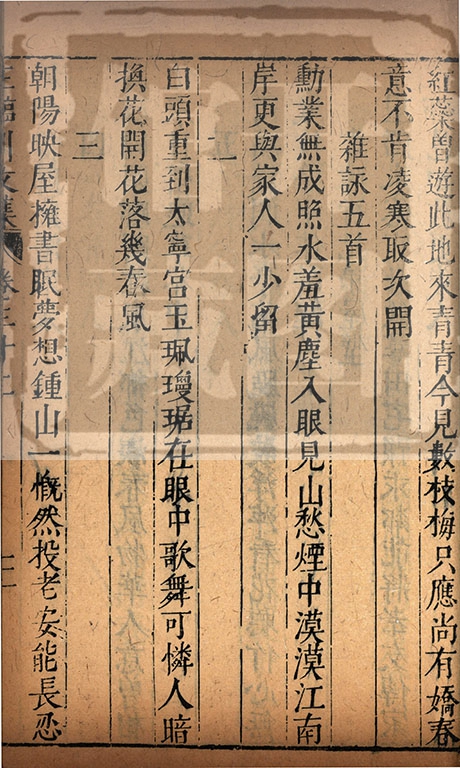 紅蘂曽遊此地來青青今見數枝梅只應尚有嬌春
意不肯凌寒取次開
雜詠五首
勳業無成照水羞黃塵入眼見山愁煙中漠漠江南
岸更與家人一少留
二
白頭重到太寧宮玉珮瓊琚在眼中歌舞可憐人暗
換花開花落幾春風
三
朝陽映屋擁書眠夢想鍾山一慨然投老安能長忍
王臨川文集 卷三十二